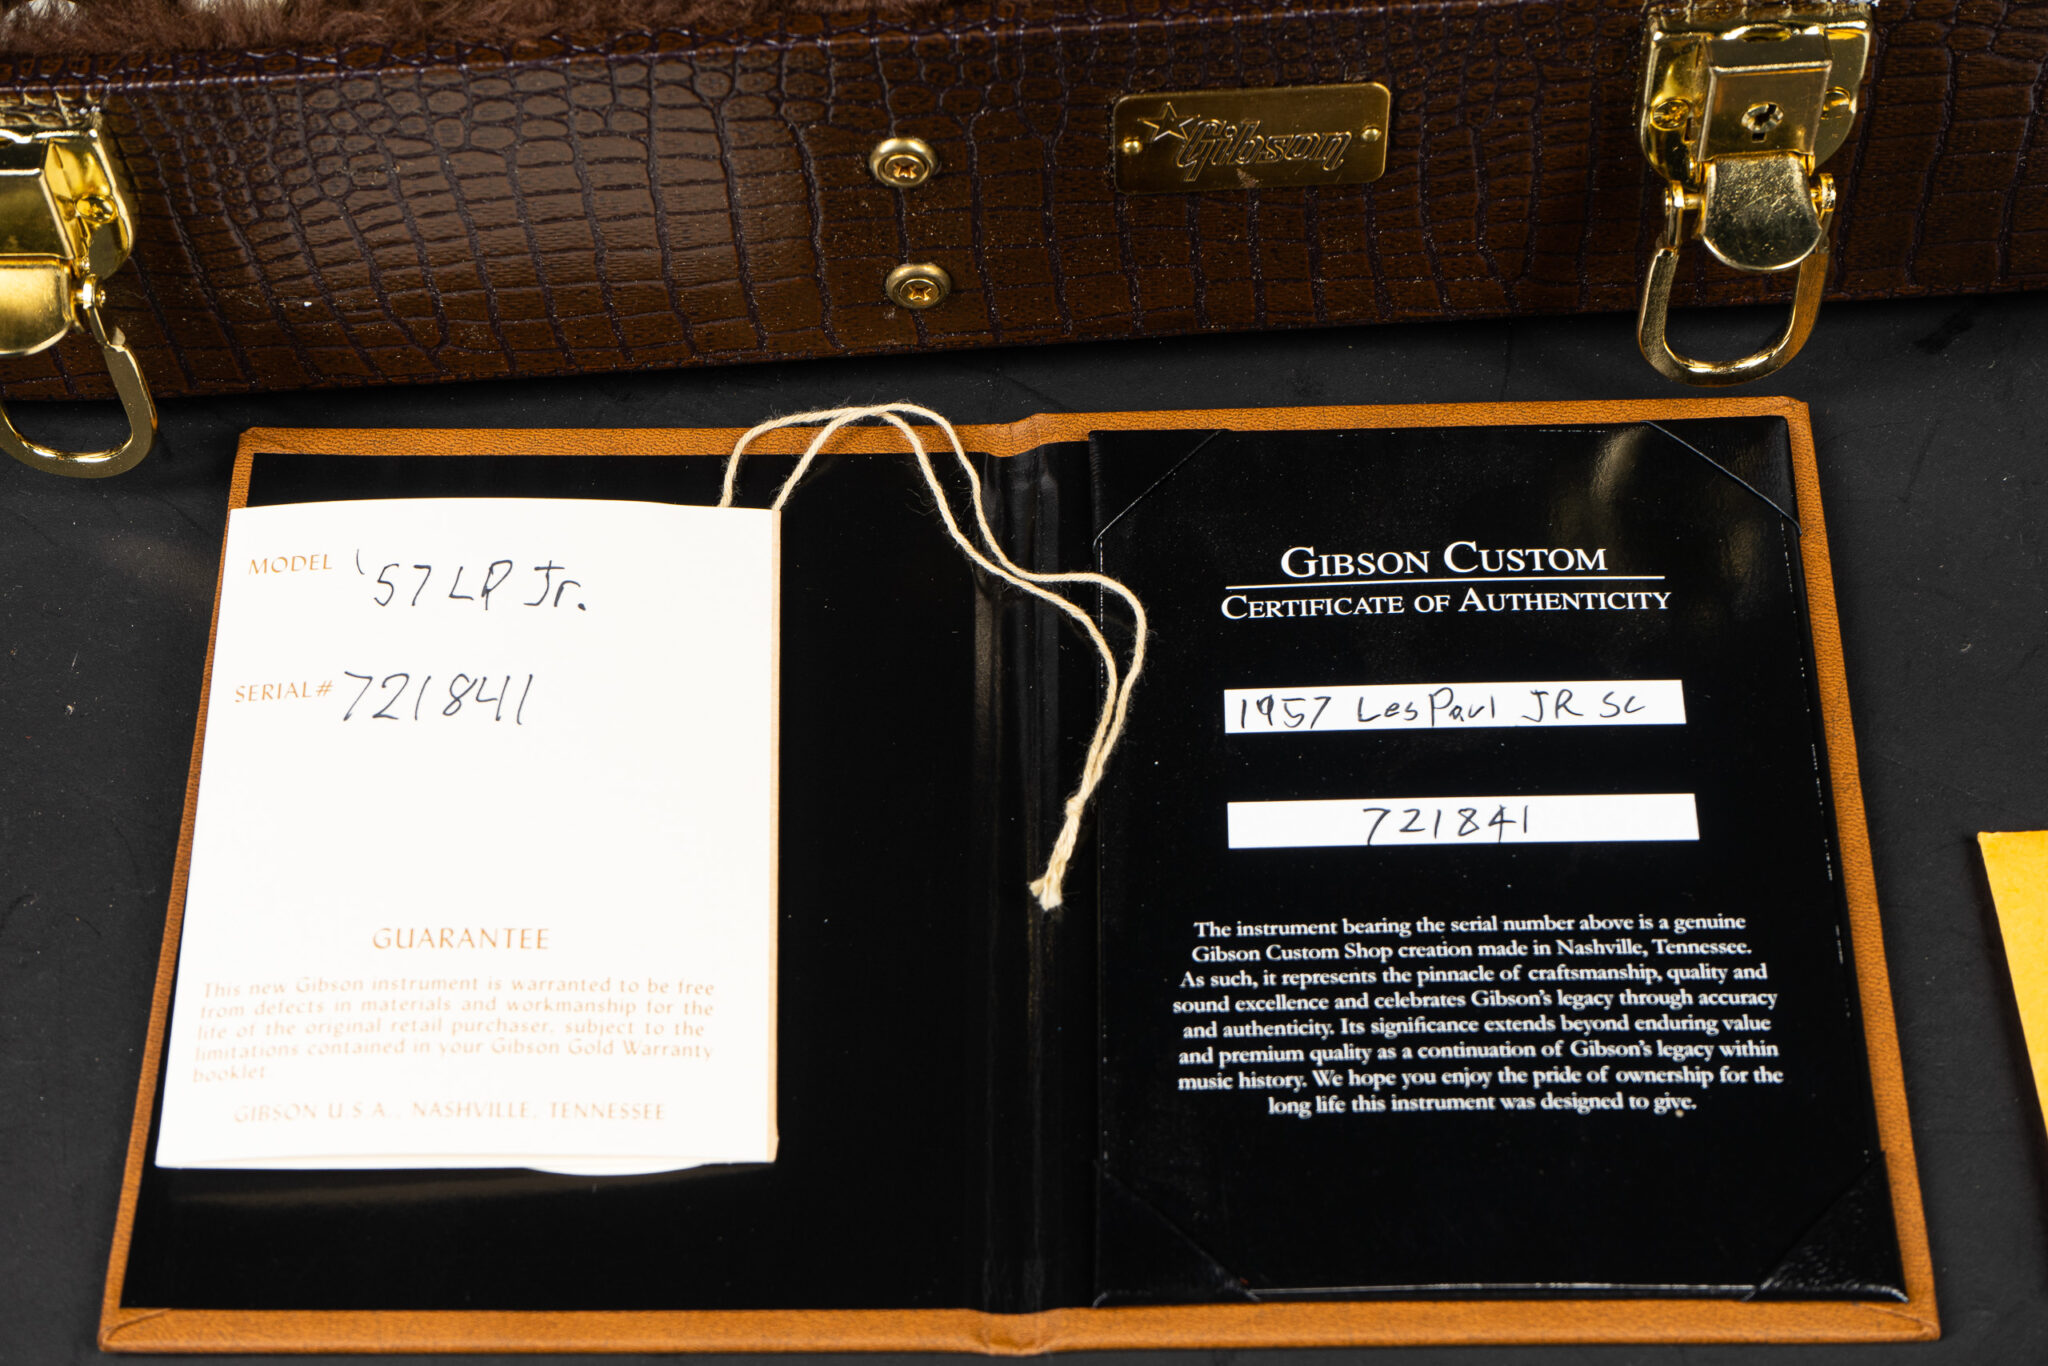 Gibson
MODEL '57 LP Jr.
SERIAL# 721841
GUARANTEE
This new Gibson instrument is warranted to be free
from defects in materials and workmanship for the
life of the original retail purchaser, subject to the
limitations contained in your Gibson Gold Warranty
booklet.
GIBSON U.S.A., NASHVILLE, TENNESSEE
GIBSON CUSTOM
CERTIFICATE OF AUTHENTICITY
1957 Les Paul JR SC
721841
The instrument bearing the serial number above is a genuine
Gibson Custom Shop creation made in Nashville, Tennessee.
As such, it represents the pinnacle of craftsmanship, quality and
sound excellence and celebrates Gibson's legacy through accuracy
and authenticity. Its significance extends beyond enduring value
and premium quality as a continuation of Gibson's legacy within
music history. We hope you enjoy the pride of ownership for the
long life this instrument was designed to give.